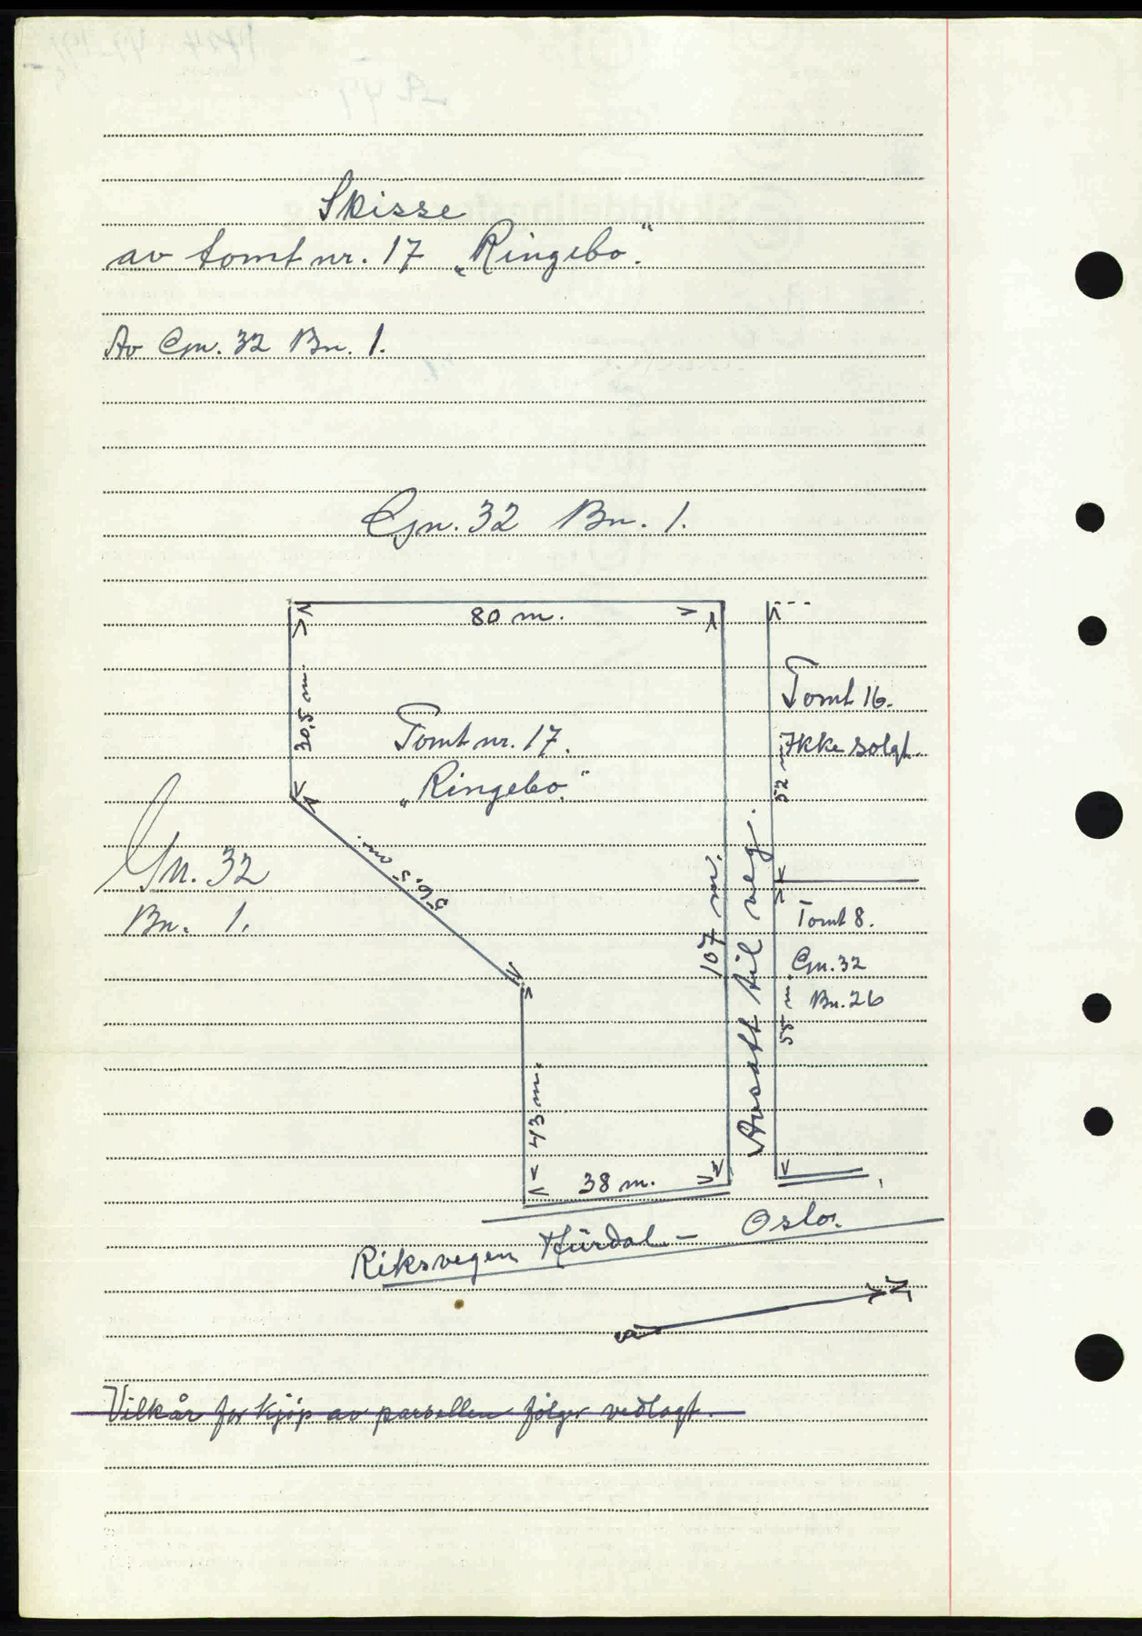 Skisse
av tomt nr. 17 „Ringebo."
Av Gn. 32 Bn. 1.
Gn. 32 Bn. 1.
80 m.
30,5 m.
Tomt nr. 17.
„Ringebo."
Tomt 16.
Ikke solgt.
52 m.
Gn. 32
Bn. 1.
56,5 m.
107 m.
Avsatt til veg.
Tomt 8.
Gn. 32
Bn. 26
55 m.
43 m.
38 m.
Riksvegen Hurdal – Oslo.
N
Vilkår for kjøp av parsellen følger vedlagt.